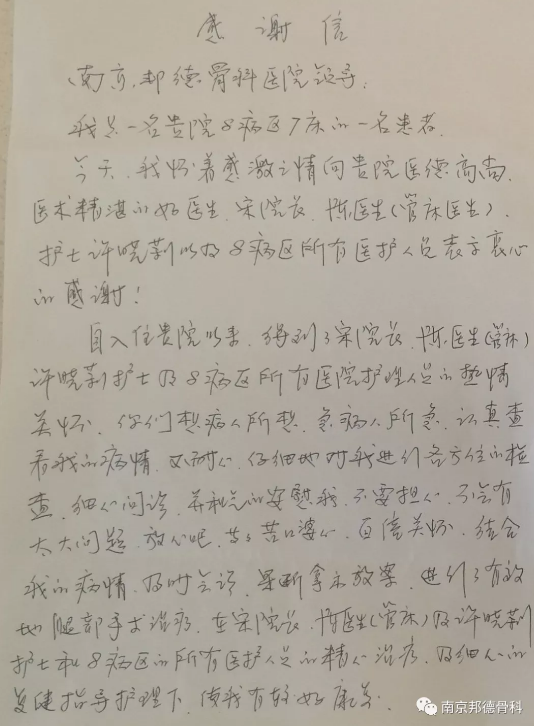 感谢信
南京邦德骨科医院领导:
我是一名贵院8病区7床的一名患者,
今天,我怀着感激之情向贵院医德高尚、
医术精湛的好医生,宋院长、陈医生(管床医生),
护士许晓莉以及8病区所有医护人员表示衷心
的感谢!
自入住贵院以来,得到了宋院长、陈医生(管床)
许晓莉护士及8病区所有医院护理人员的热情
关怀,你们想病人所想,急病人所急,认真查
看我的病情,又耐心、仔细地对我进行各方位的检
查,细心问诊,并和气的安慰我,不要担心,不会有
太大问题,放心吧,苦口婆心,百倍关怀,结合
我的病情,及时会诊,果断拿出方案,进行了有效
地腿部手术治疗,在宋院长、陈医生(管床)及许晓莉
护士和8病区的所有医护人员的精心治疗,及细心的
复健指导护理下,使我有较好康复.
南京邦德骨科